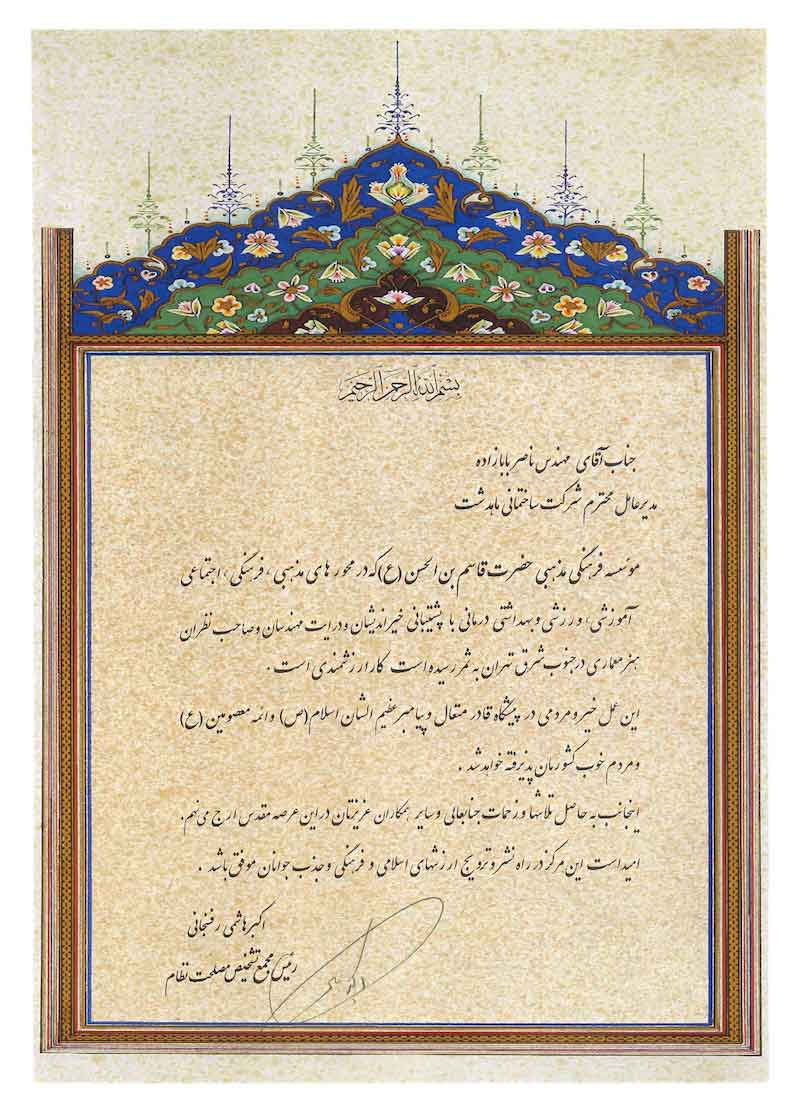 بسم الله الرحمن الرحیم
جناب آقای مهندس ناصر بابازاده
مدیرعامل محترم شرکت ساختمانی ماهدشت
مؤسسه فرهنگی مذهبی حضرت قاسم بن الحسن (ع) که در محورهای مذهبی، فرهنگی، اجتماعی
آموزشی، ورزشی و بهداشتی درمانی با پشتیبانی خیراندیشان و درایت مهندسان و صاحب نظران
هنر معماری در جنوب شرق تهران به ثمر رسیده است کار ارزشمندی است.
این عمل خیر و مردمی در پیشگاه قادر متعال و پیامبر عظیم الشان اسلام (ص) و ائمه معصومین (ع)
و مردم خوب کشورمان پذیرفته خواهد شد.
اینجانب به حاصل تلاشها و زحمات جنابعالی و سایر همکاران عزیزتان در این عرصه مقدس ارج می‌نهم.
امید است این مرکز در راه نشر و ترویج ارزشهای اسلامی و فرهنگی و جذب جوانان موفق باشد.
اکبر هاشمی رفسنجانی
رئیس مجمع تشخیص مصلحت نظام